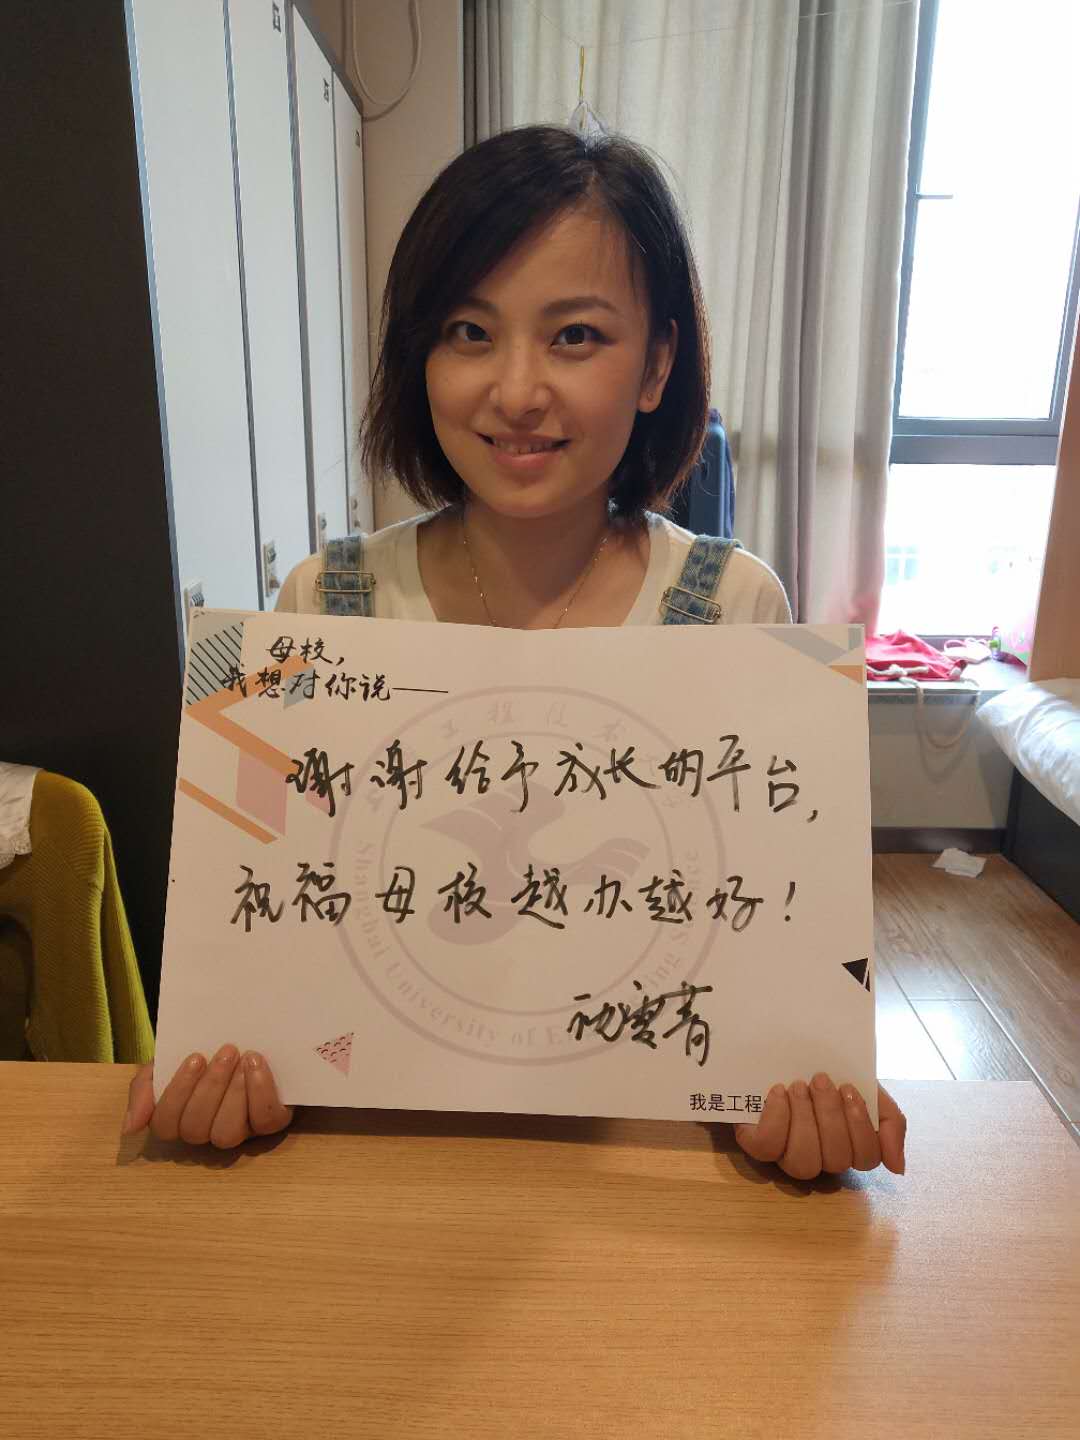 母校,
我想对你说——
谢谢给予成长的平台,
祝福母校越办越好!
Shanghai University of Engineering Science
我是工程